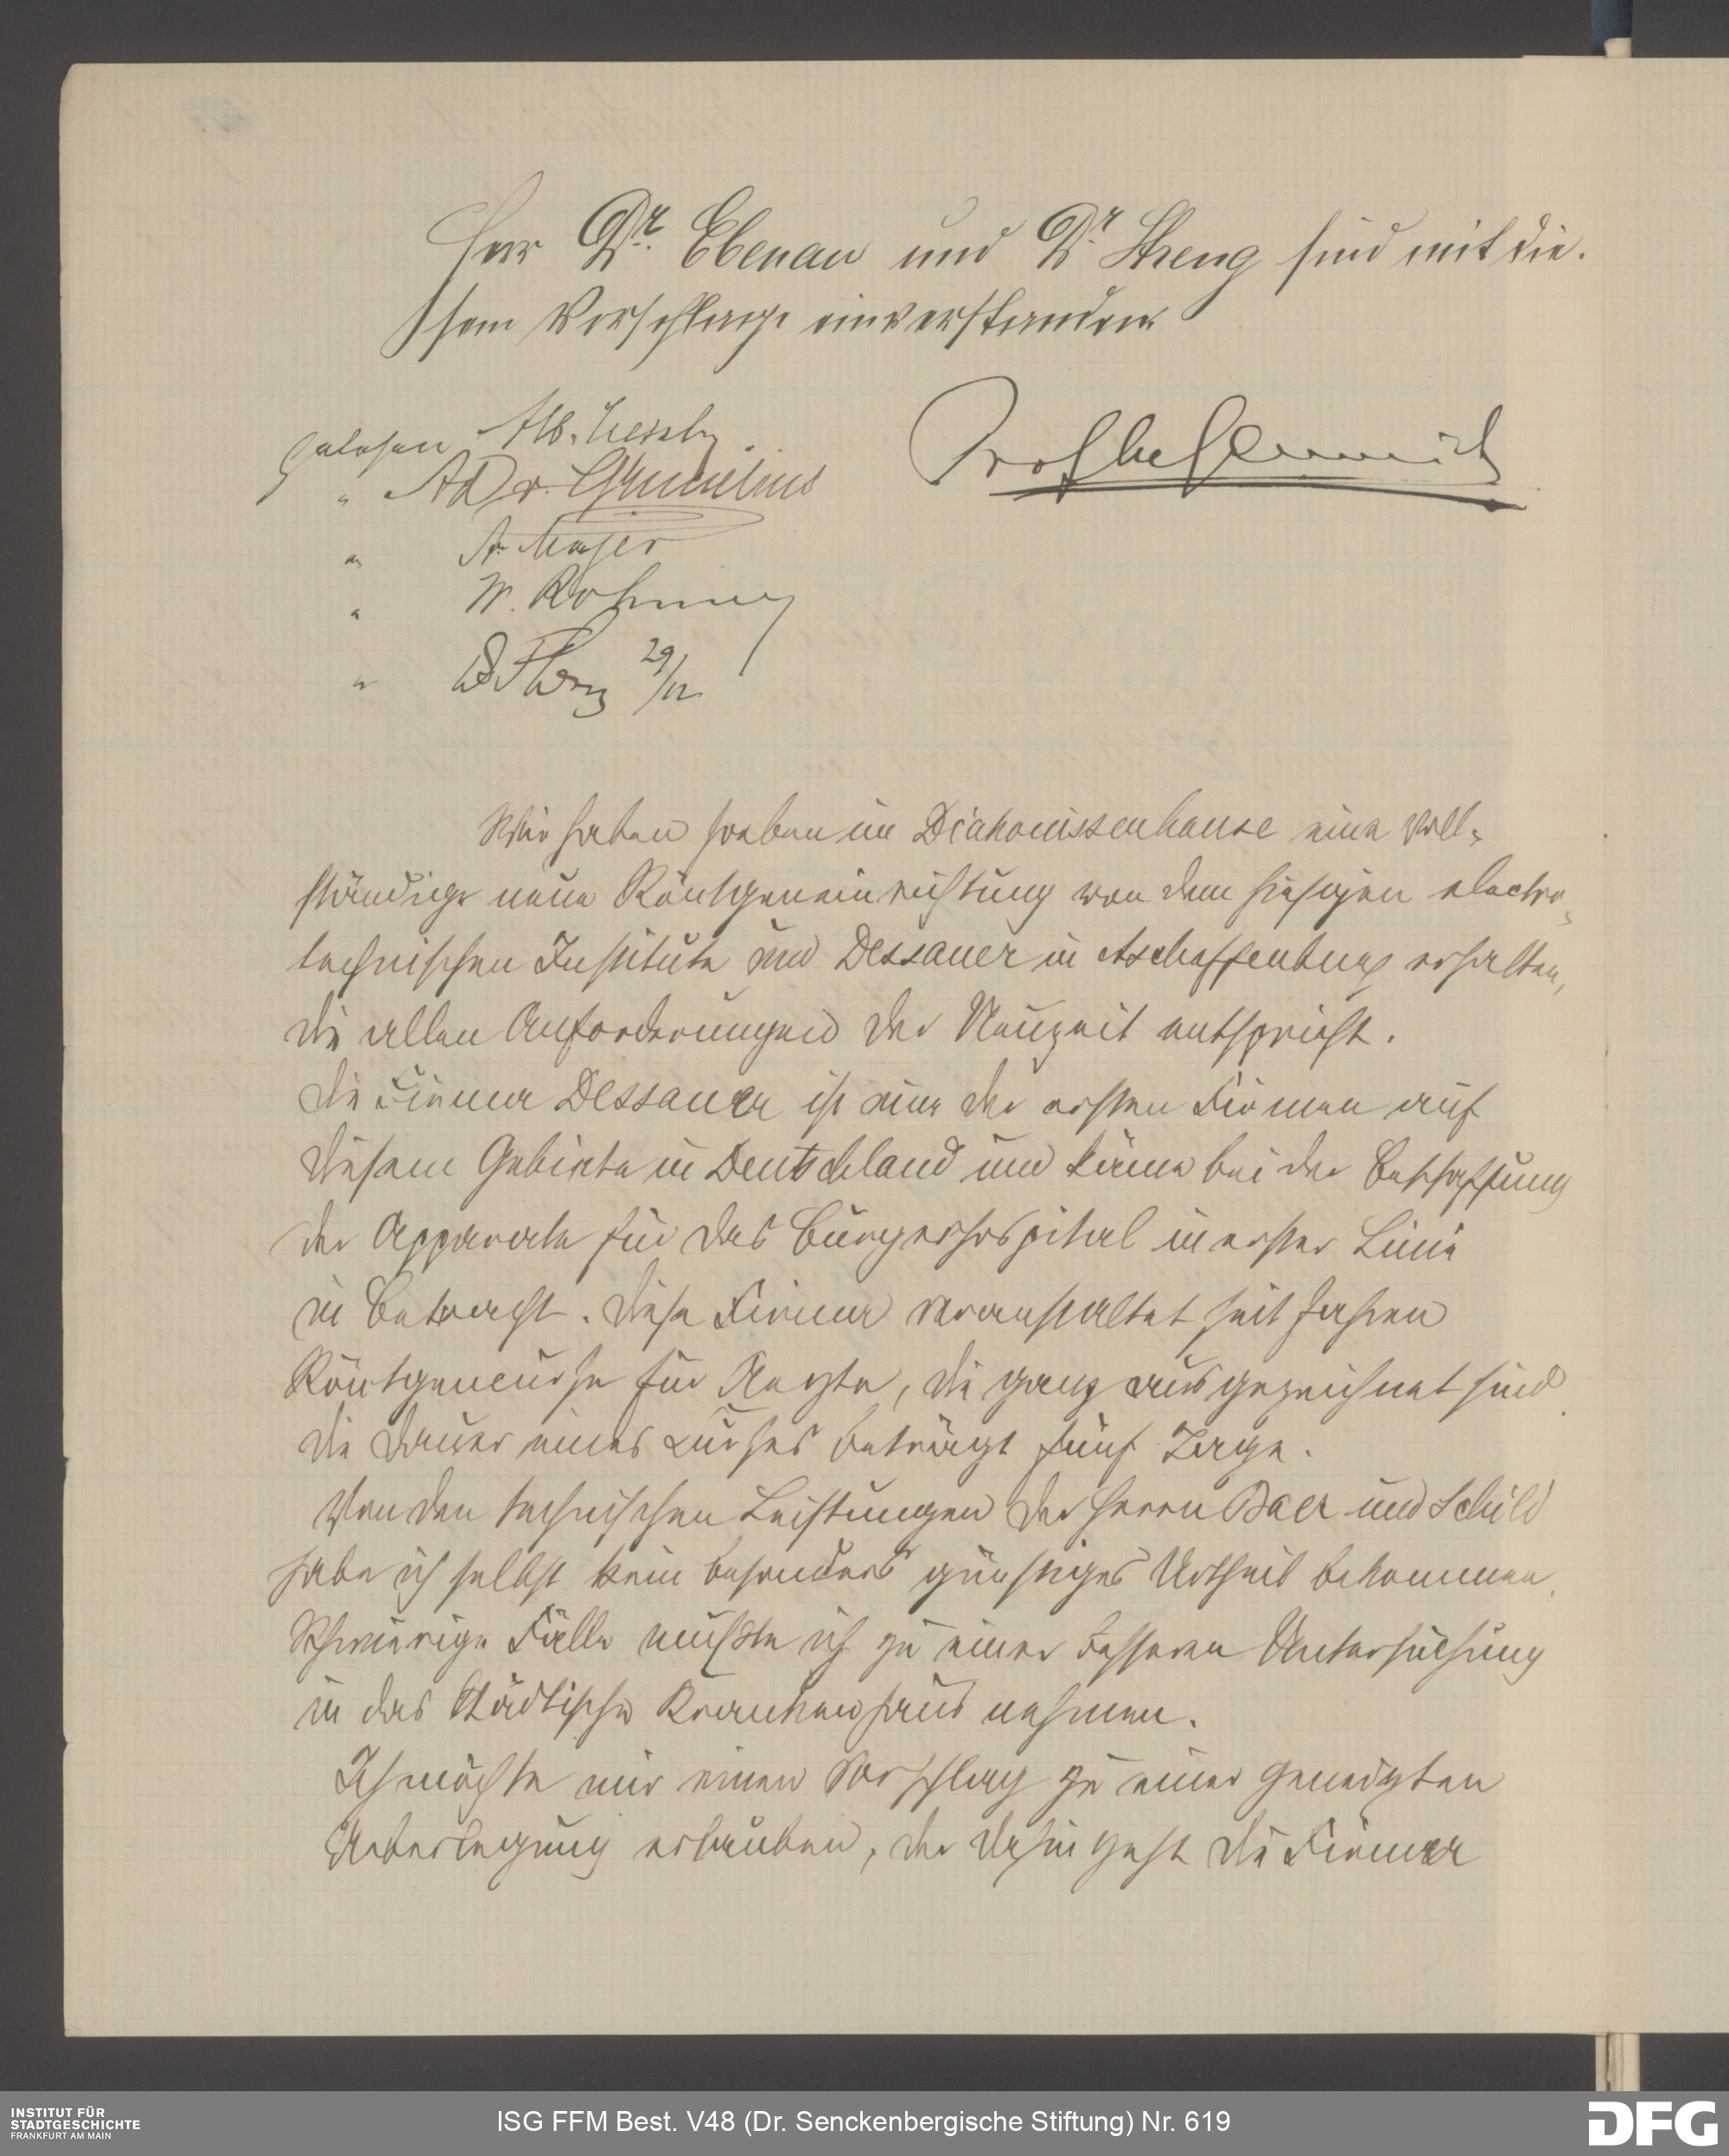 Herr Dr. Ebenau und Dr. Streng sind mit die-
sem Vorschlage einverstanden
gelesen Alb.
" A Dr.
" A. Mayer
"
" 29/12
Wir haben soeben im Diakonissenhause eine voll-
ständige neue Röntgeneinrichtung von dem hiesigen electro-
technischen Institute und Dessauer in Aschaffenburg erhalten,
die allen Anforderungen der Neuzeit entspricht.
Die Firma Dessauer ist eine der ersten Firmen auf
diesem Gebiete in Deutschland und käme bei der Beschaffung
der Apparate für das Bürgerhospital in erster Linie
in Betracht. Diese Firma veranstaltet seit Jahren
Röntgencurse für Aerzte, die ganz ausgezeichnet sind.
Die Dauer eines Curses beträgt fünf Tage.
Von den technischen Leistungen der Herrn Baer und Schild
habe ich selbst kein besonders günstiges Urtheil bekommen.
Schwierige Fälle mußte ich zu einer besseren Untersuchung
in das Städtische Krankenhaus nehmen.
Ich möchte mir einen Vorschlag zu einer geneigten
Ueberlegung erlauben, der dahin geht die Firma
INSTITUT FÜR
STADTGESCHICHTE
FRANKFURT AM MAIN
ISG FFM Best. V48 (Dr. Senckenbergische Stiftung) Nr. 619
DFG